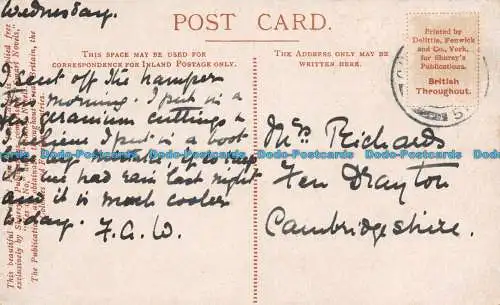 Wednesday.
POST CARD.
THIS SPACE MAY BE USED FOR
CORRESPONDENCE FOR INLAND POSTAGE ONLY.
THE ADDRESS ONLY MAY BE
WRITTEN HERE.
Printed by
Delittle, Fenwick
and Co., York,
for Shurey's
Publications.
British
Throughout.
I sent off the hamper
this morning. I put in a
few geranium cuttings &
I put in a boot
we had rain last night
and it is much cooler
today. F.A.W.
Mrs Richards
Fen Drayton
Cambridgeshire.
This beautiful
exclusively by Shurey's
The Publications
obtainable throughout Great Britain, the
Do-Postcards Do-Postcards Do-Postcards Do-Postcards Do-Postcards